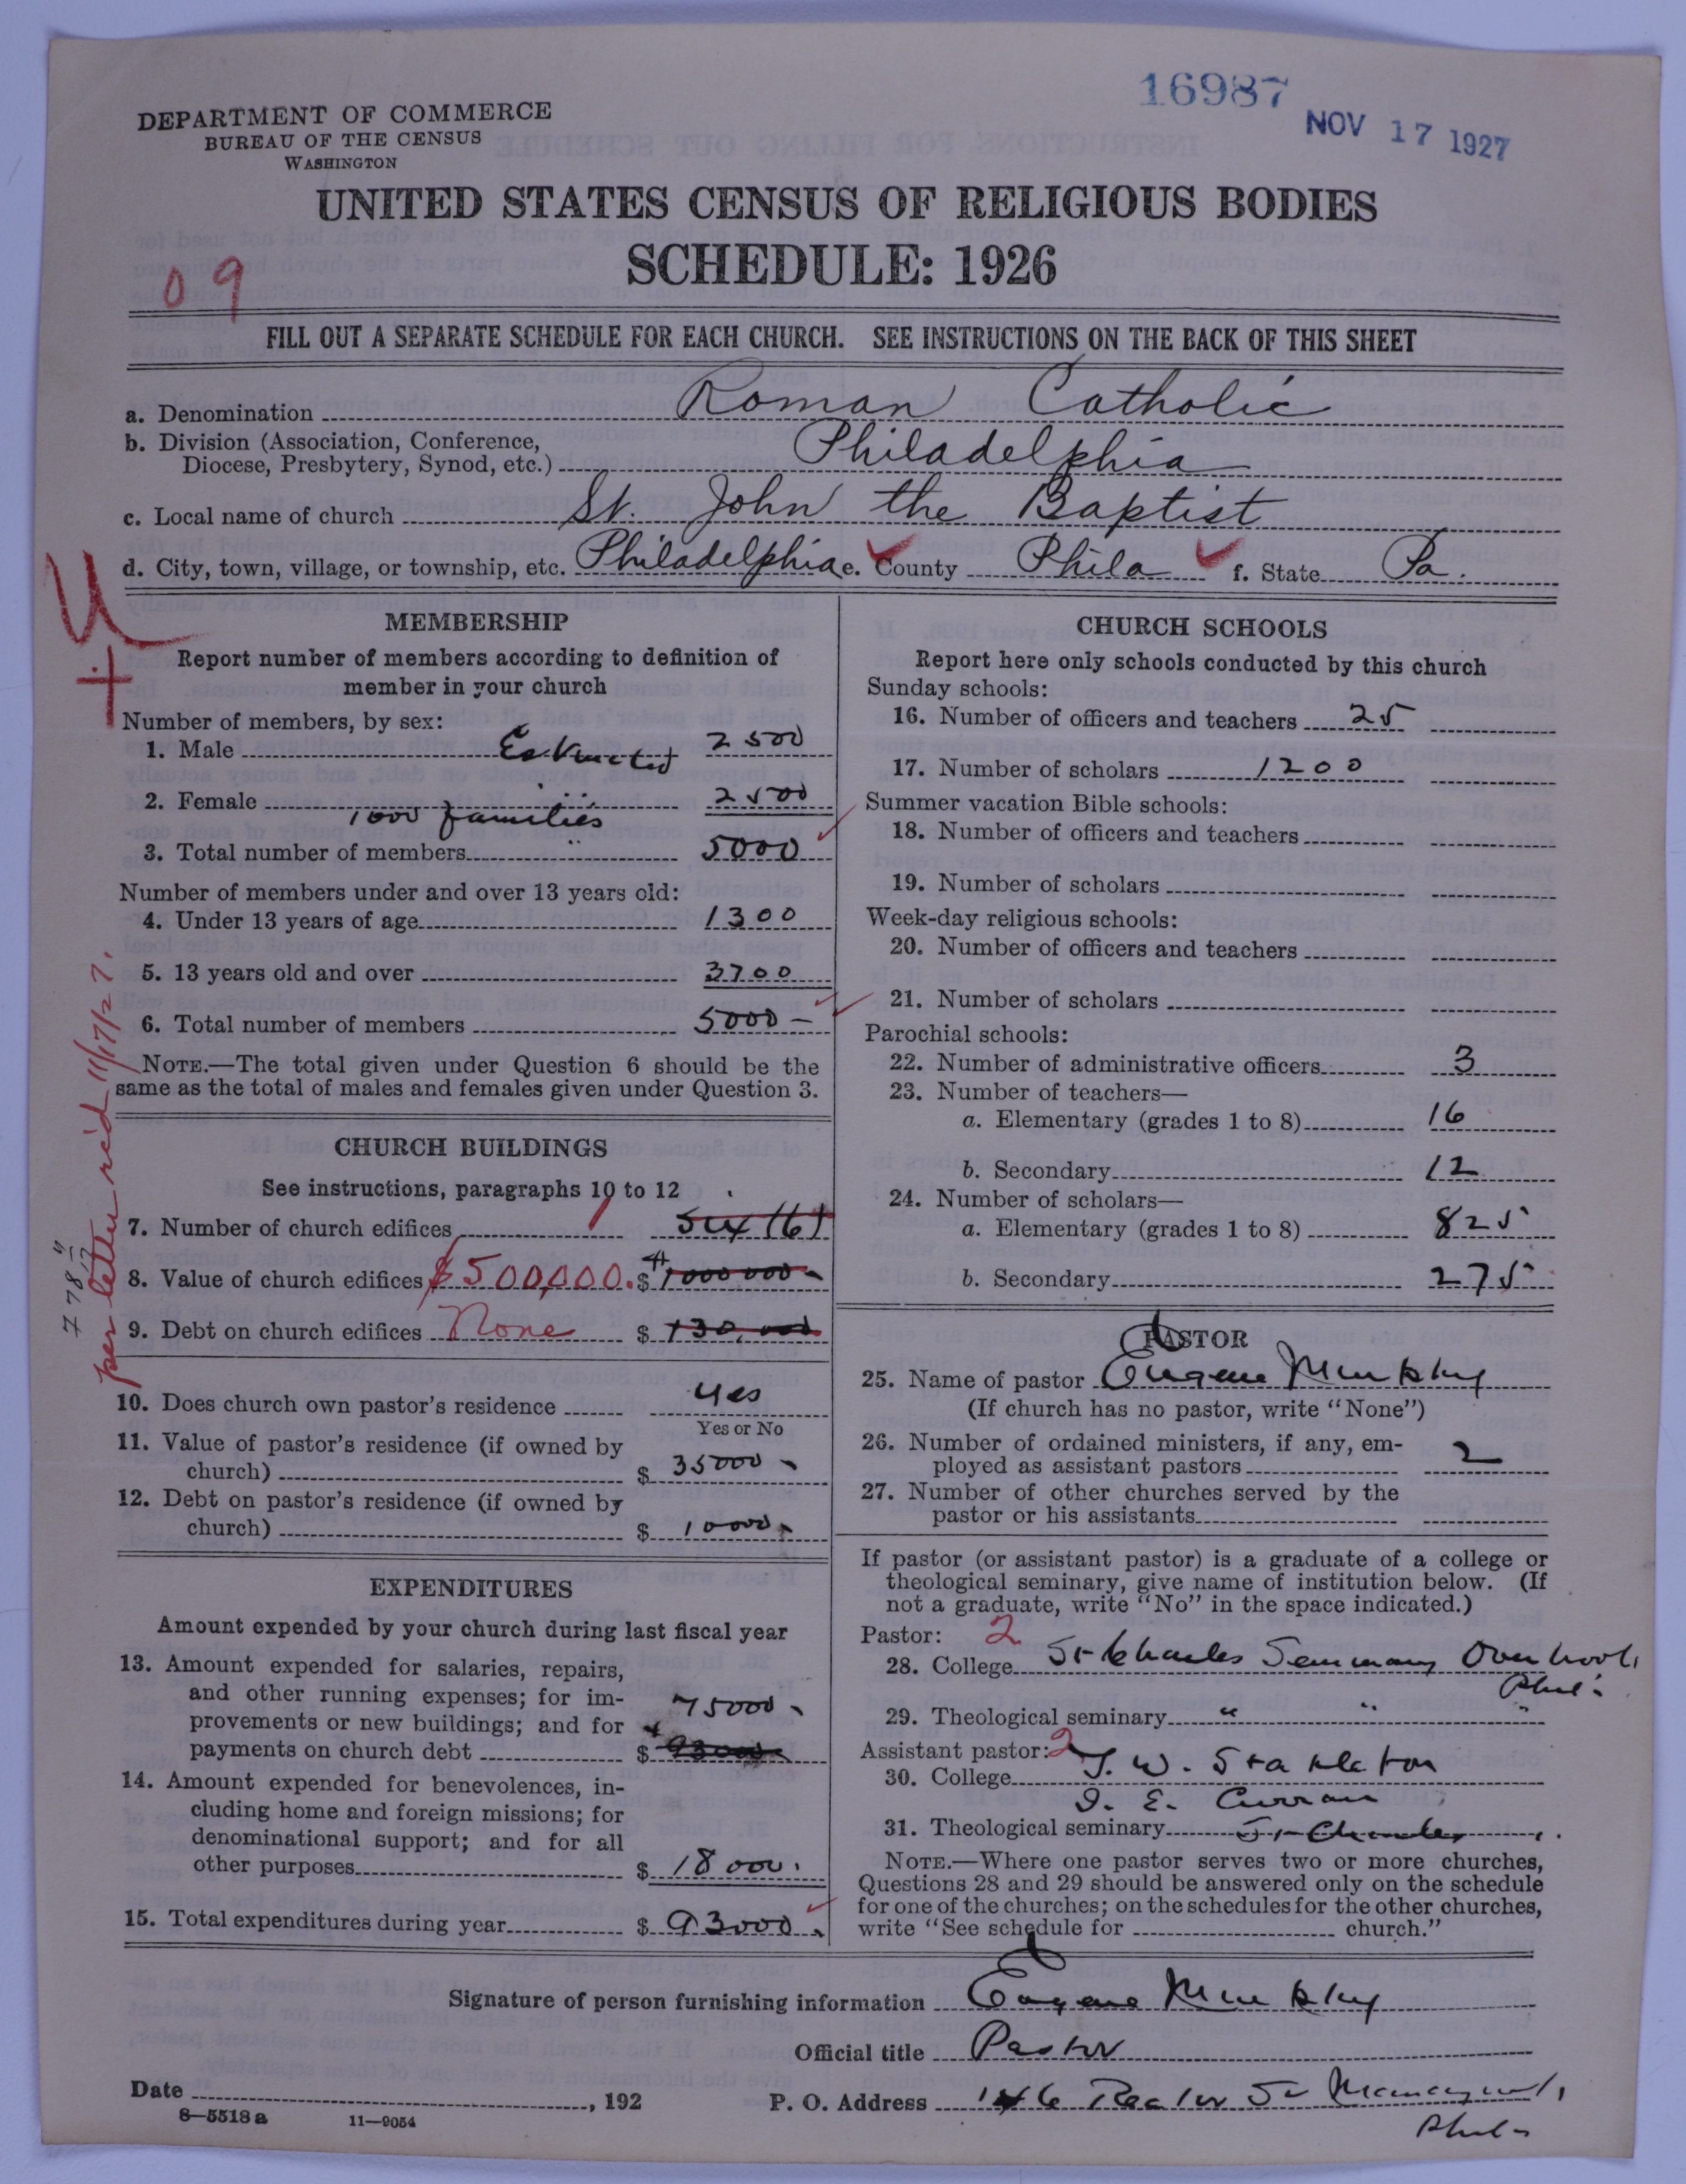 16987
NOV 17 1927
DEPARTMENT OF COMMERCE
BUREAU OF THE CENSUS
WASHINGTON
UNITED STATES CENSUS OF RELIGIOUS BODIES
SCHEDULE: 1926
09
FILL OUT A SEPARATE SCHEDULE FOR EACH CHURCH. SEE INSTRUCTIONS ON THE BACK OF THIS SHEET
a. Denomination Roman Catholic
b. Division (Association, Conference,
Diocese, Presbytery, Synod, etc.) Philadelphia
c. Local name of church St. John the Baptist
d. City, town, village, or township, etc. Philadelphia e. County Phila f. State Pa.
MEMBERSHIP
Report number of members according to definition of
member in your church
Number of members, by sex:
1. Male Estimated 2500
2. Female " 2500
1000 families
3. Total number of members 5000
Number of members under and over 13 years old:
4. Under 13 years of age 1300
5. 13 years old and over 3700
6. Total number of members 5000 -
NOTE.—The total given under Question 6 should be the
same as the total of males and females given under Question 3.
per letter rec'd 11/17/27.
CHURCH BUILDINGS
See instructions, paragraphs 10 to 12
7. Number of church edifices 1 Six (6)
8. Value of church edifices $500,000. $ 1000 000 -
9. Debt on church edifices None $ 130,000
10. Does church own pastor's residence yes
Yes or No
11. Value of pastor's residence (if owned by
church) $ 35000 -
12. Debt on pastor's residence (if owned by
church) $ 10000 -
EXPENDITURES
Amount expended by your church during last fiscal year
13. Amount expended for salaries, repairs,
and other running expenses; for im-
provements or new buildings; and for 75000 -
payments on church debt $ 93000
14. Amount expended for benevolences, in-
cluding home and foreign missions; for
denominational support; and for all
other purposes $ 18 000.
15. Total expenditures during year $ 93000 -
CHURCH SCHOOLS
Report here only schools conducted by this church
Sunday schools:
16. Number of officers and teachers 25
17. Number of scholars 1200
Summer vacation Bible schools:
18. Number of officers and teachers
19. Number of scholars
Week-day religious schools:
20. Number of officers and teachers
21. Number of scholars
Parochial schools:
22. Number of administrative officers 3
23. Number of teachers—
a. Elementary (grades 1 to 8) 16
b. Secondary 12
24. Number of scholars—
a. Elementary (grades 1 to 8) 825
b. Secondary 275
PASTOR
25. Name of pastor Eugene Murphy
(If church has no pastor, write "None")
26. Number of ordained ministers, if any, em-
ployed as assistant pastors 2
27. Number of other churches served by the
pastor or his assistants
If pastor (or assistant pastor) is a graduate of a college or
theological seminary, give name of institution below. (If
not a graduate, write "No" in the space indicated.)
Pastor: 2
28. College St Charles Seminary Overbrook
Phil.
29. Theological seminary " " "
Assistant pastor: 2
30. College J. W. Stapleton
J. E. Curran
31. Theological seminary St Charles
NOTE.—Where one pastor serves two or more churches,
Questions 28 and 29 should be answered only on the schedule
for one of the churches; on the schedules for the other churches,
write "See schedule for church."
Signature of person furnishing information Eugene Murphy
Official title Pastor
Date , 192 P. O. Address 146 Rector St Manayunk
Phil -
8—5518a 11—9054